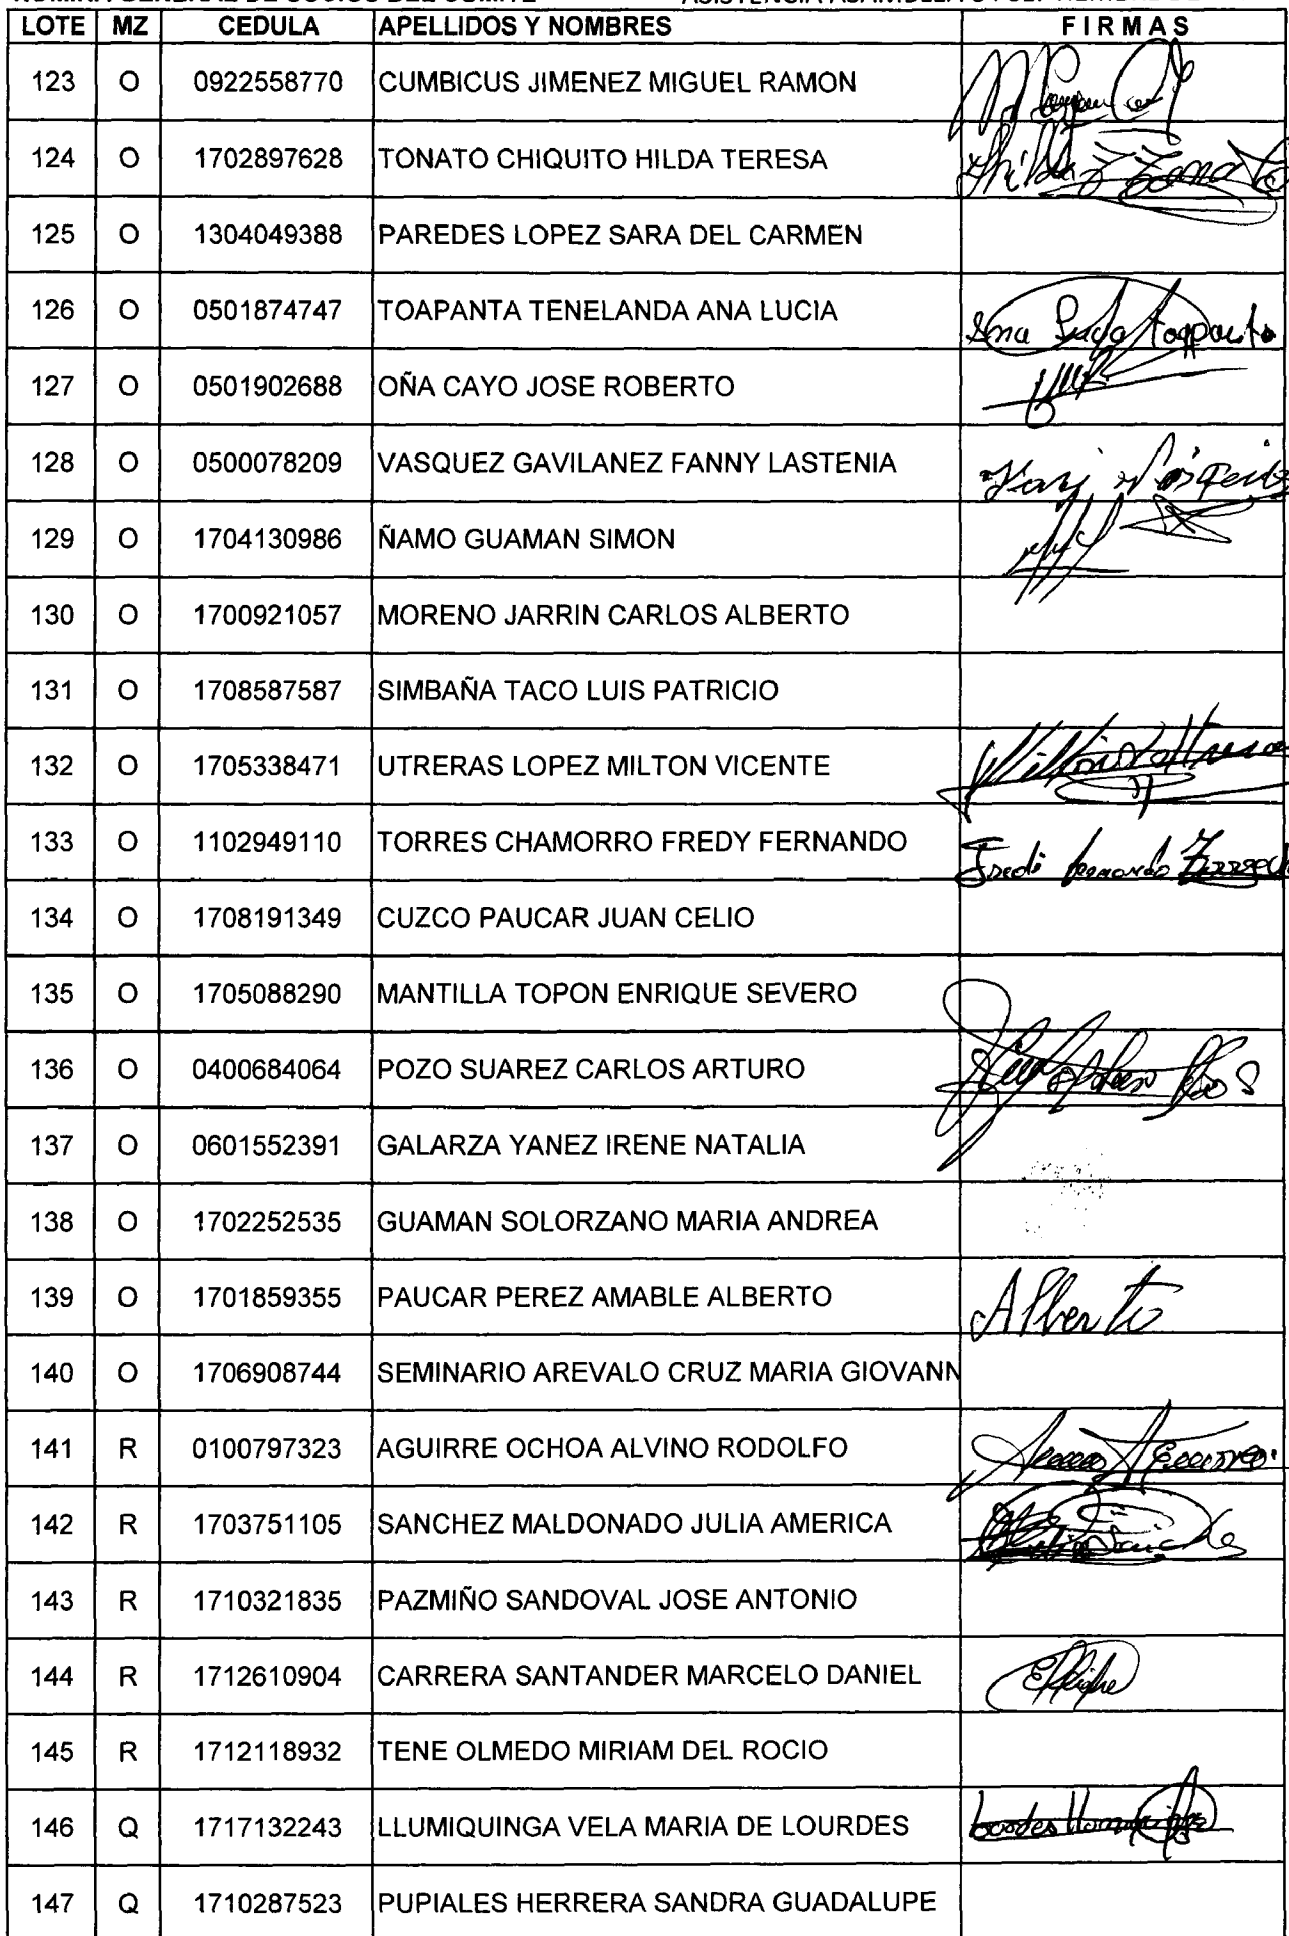 LOTE MZ CEDULA APELLIDOS Y NOMBRES FIRMAS
123 O 0922558770 CUMBICUS JIMENEZ MIGUEL RAMON
124 O 1702897628 TONATO CHIQUITO HILDA TERESA
125 O 1304049388 PAREDES LOPEZ SARA DEL CARMEN
126 O 0501874747 TOAPANTA TENELANDA ANA LUCIA
127 O 0501902688 OÑA CAYO JOSE ROBERTO
128 O 0500078209 VASQUEZ GAVILANEZ FANNY LASTENIA
129 O 1704130986 ÑAMO GUAMAN SIMON
130 O 1700921057 MORENO JARRIN CARLOS ALBERTO
131 O 1708587587 SIMBAÑA TACO LUIS PATRICIO
132 O 1705338471 UTRERAS LOPEZ MILTON VICENTE
133 O 1102949110 TORRES CHAMORRO FREDY FERNANDO
134 O 1708191349 CUZCO PAUCAR JUAN CELIO
135 O 1705088290 MANTILLA TOPON ENRIQUE SEVERO
136 O 0400684064 POZO SUAREZ CARLOS ARTURO
137 O 0601552391 GALARZA YANEZ IRENE NATALIA
138 O 1702252535 GUAMAN SOLORZANO MARIA ANDREA
139 O 1701859355 PAUCAR PEREZ AMABLE ALBERTO Alberto
140 O 1706908744 SEMINARIO AREVALO CRUZ MARIA GIOVANN
141 R 0100797323 AGUIRRE OCHOA ALVINO RODOLFO
142 R 1703751105 SANCHEZ MALDONADO JULIA AMERICA
143 R 1710321835 PAZMIÑO SANDOVAL JOSE ANTONIO
144 R 1712610904 CARRERA SANTANDER MARCELO DANIEL
145 R 1712118932 TENE OLMEDO MIRIAM DEL ROCIO
146 Q 1717132243 LLUMIQUINGA VELA MARIA DE LOURDES
147 Q 1710287523 PUPIALES HERRERA SANDRA GUADALUPE